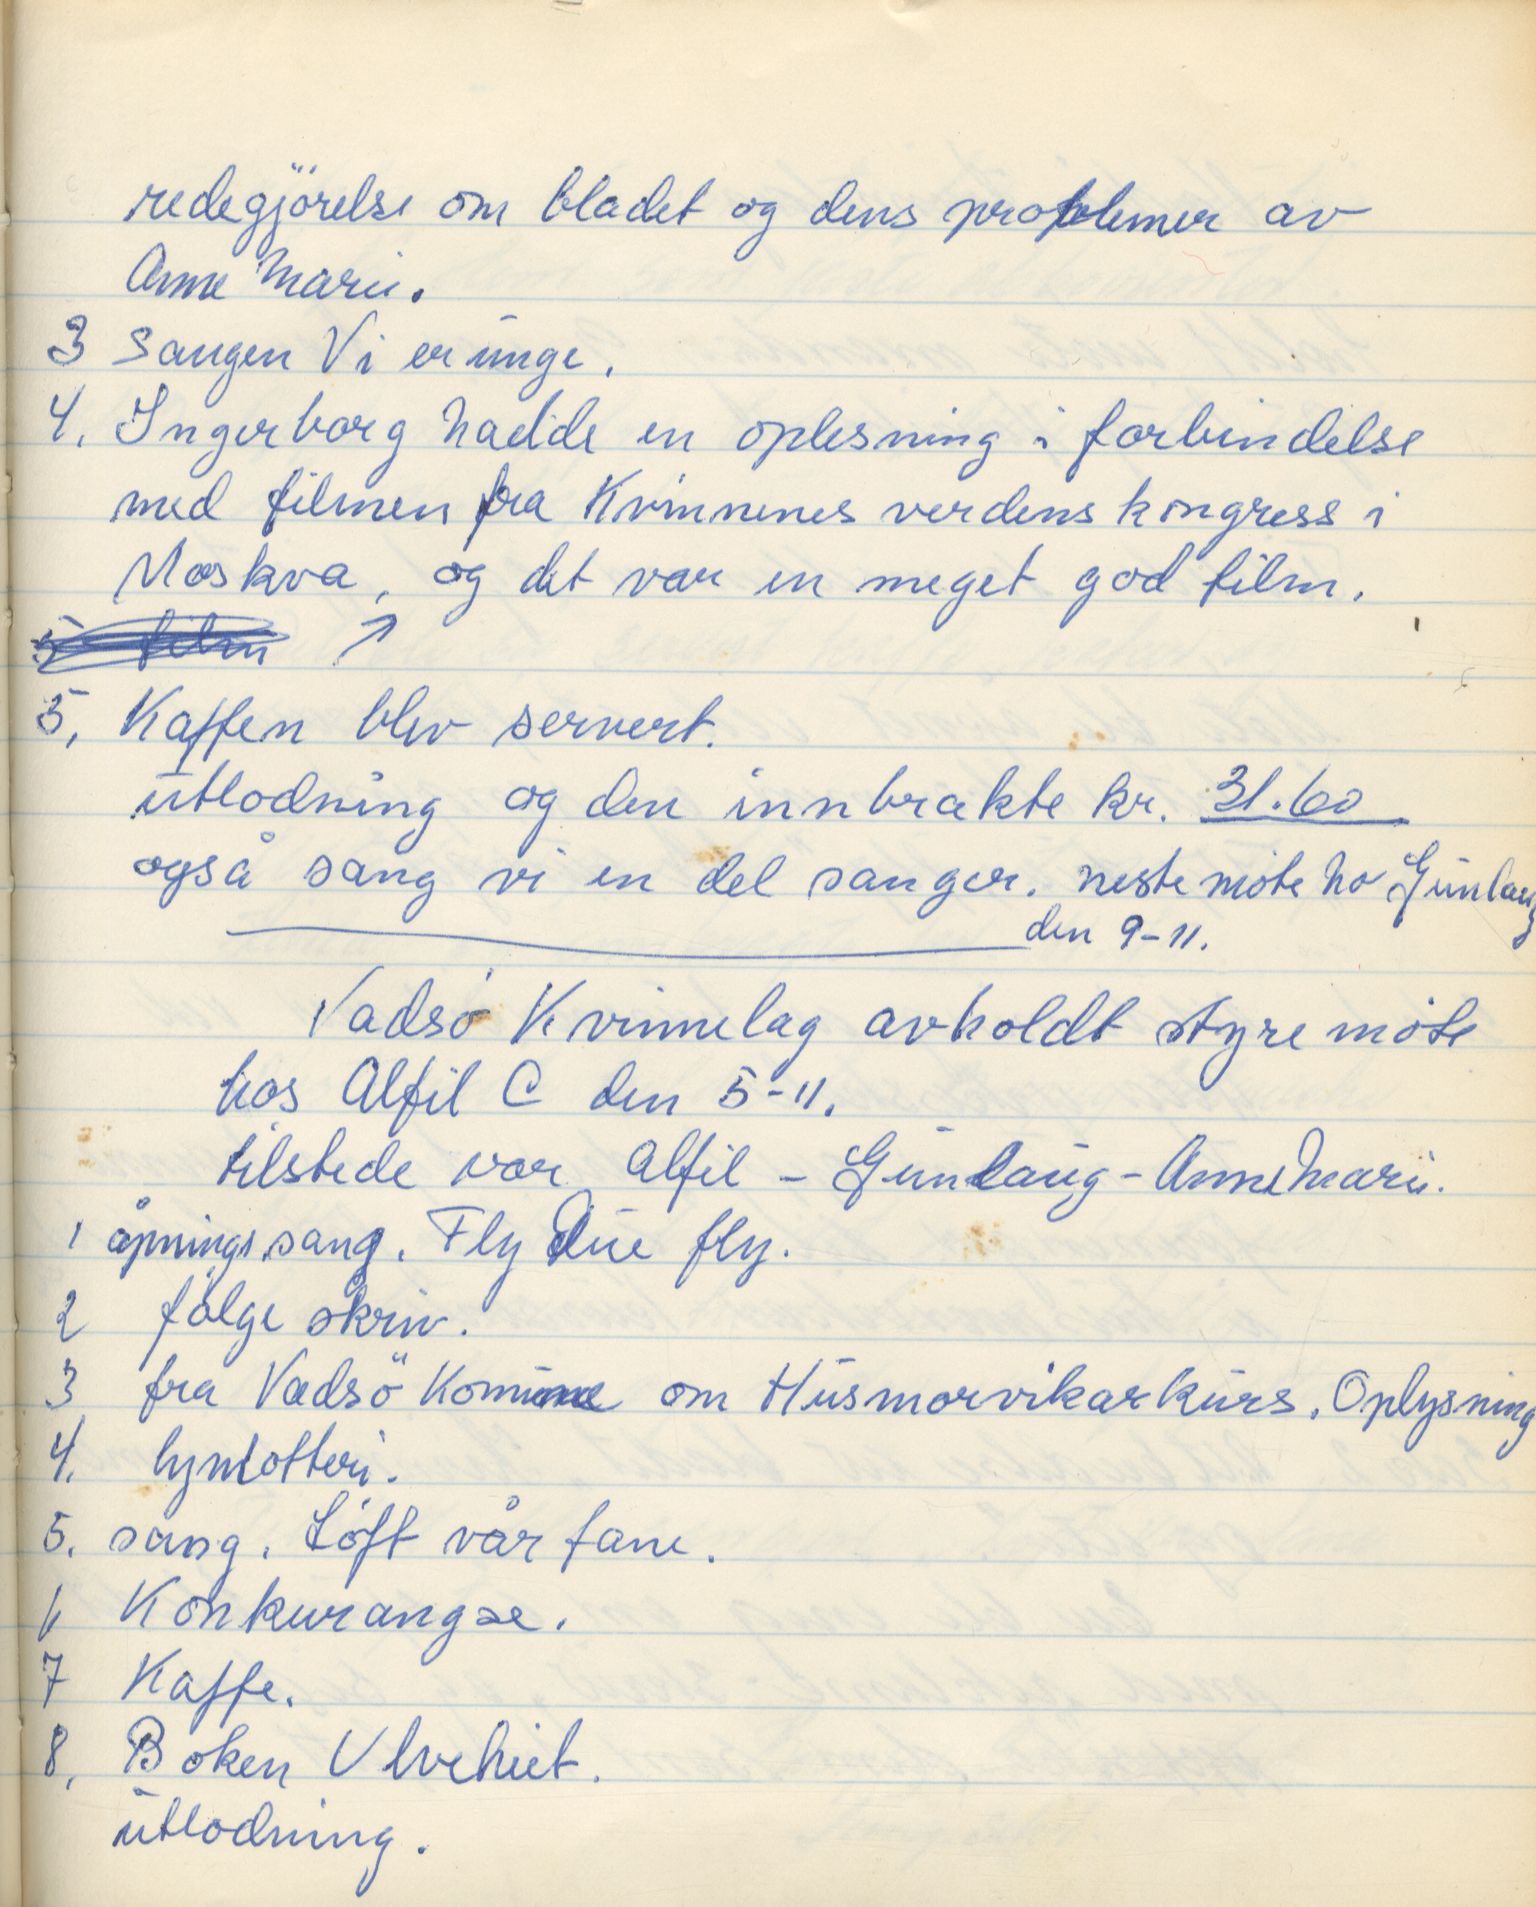 redegjörelse om bladet og dens problemer av
Anne Marie.
3 sangen Vi er unge.
4. Ingerborg hadde en oplesning i forbindelse
med filmen fra Kvinnenes verdens kongress i
Moskva, og det var en meget god film.
5 film ↗
5, Kaffen blev servert.
utlodning og den innbrakte kr. 31.60
også sang vi en del sanger. neste möte ho Gunlaug
den 9-11.
Vadsö Kvinnelag avholdt styre möte
hos Alfil C den 5-11.
tilstede var Alfil - Gunlaug - Anne Marie.
1 åpnings sang. Fly Due fly.
2 fölge skriv.
3 fra Vadsö Komune om Husmorvikarkurs. Oplysning
4. lynlotteri.
5. sang. Löft vår fane.
6 Konkurangse.
7 Kaffe.
8, Boken Ulvehiet.
utlodning.